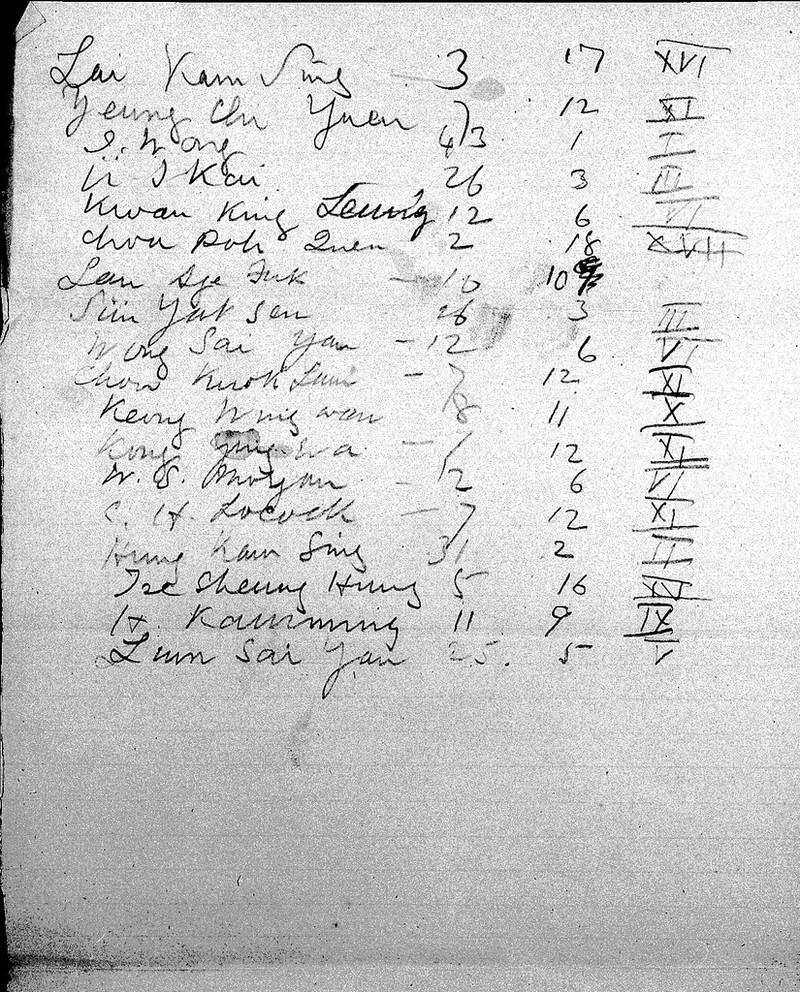 Lai Kam Sing - 3 17 XVI
Yeung Chi Yuen 7 12 XI
S. Wong 43 1 I
U I Kai 26 3 III
Kwan King Leung 12 6 VI
Chou Poh Quen 2 18 XVII
Lau Sze Fuk - 10 10
Sun Yat Sen 26 3 III
Wong Sai Yan - 12 6 VI
Chow Kwok Lam - 7 12 XI
Keong Wing wan 8 11 X
Kong Ying Wa - 7 12 XI
W. S. Moryan - 12 6 VI
C. H. Locock - 7 12 XI
Hung Kam Sing 31 2 II
Tze Sheung Hung 5 16 XV
H. Kamming 11 9 IX
Lum Sai Yan 25. 5 V